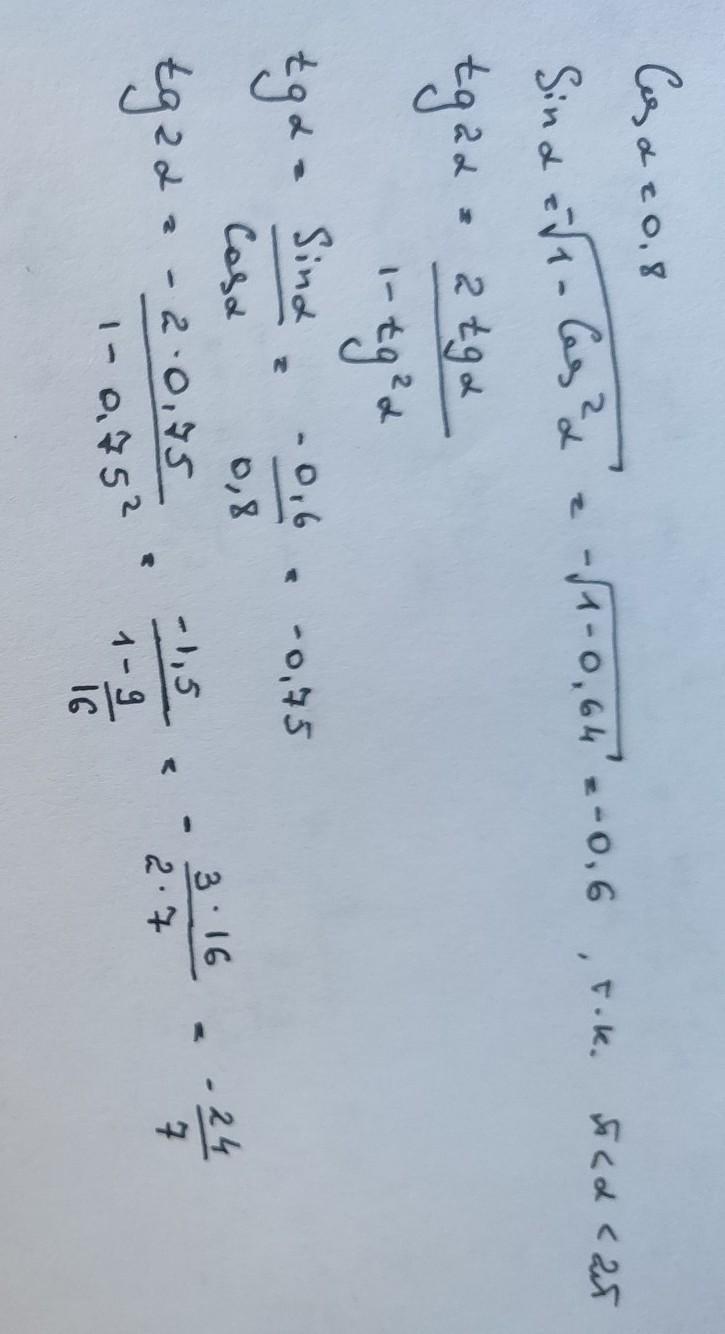 Cos α = 0,8
Sin α = -√(1 - Cos² α) = -√(1 - 0,64) = -0,6 , т.к. π < α < 2π
tg 2α = 2 tg α / (1 - tg² α)
tg α = Sin α / Cos α = -0,6 / 0,8 = -0,75
tg 2α = - 2 · 0,75 / (1 - 0,75²) = -1,5 / (1 - 9/16) = - 3 · 16 / (2 · 7) = - 24/7